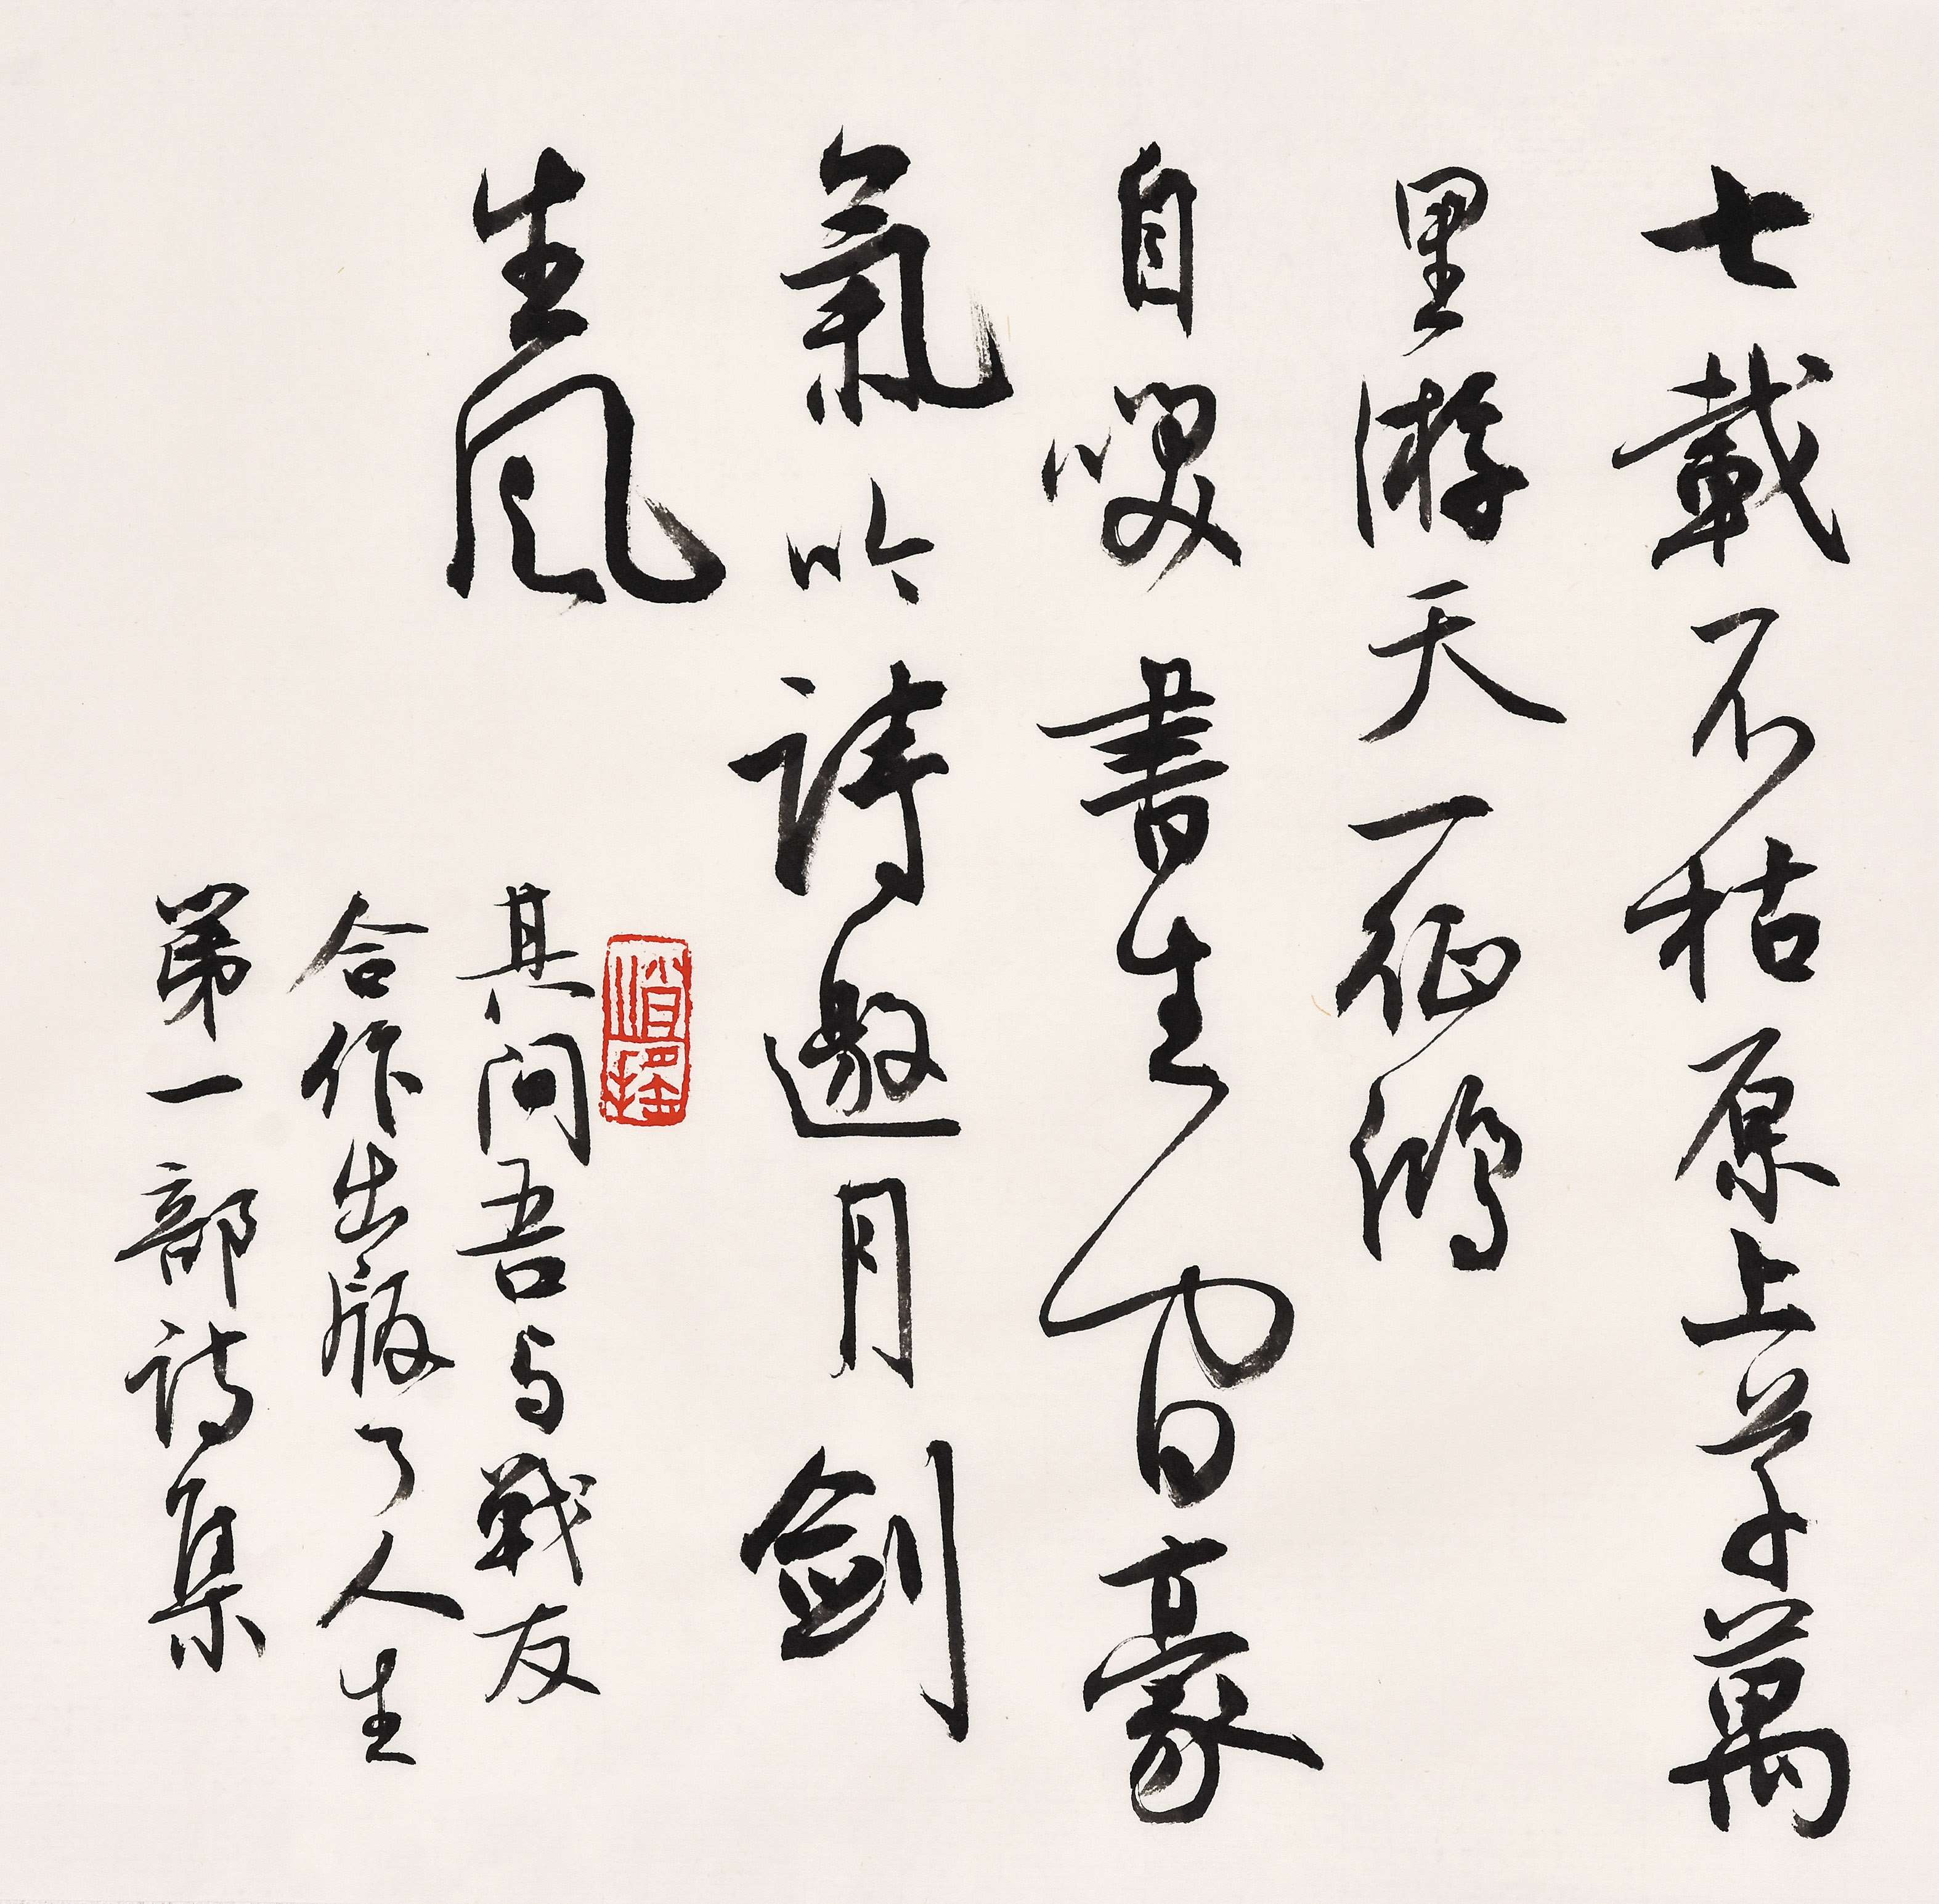 七載不枯原上草萬
里游天一征鴻
自書生豪
氣吟詩邀月劍
生風
其间吾与戰友
合作出版了人生
第一部诗集